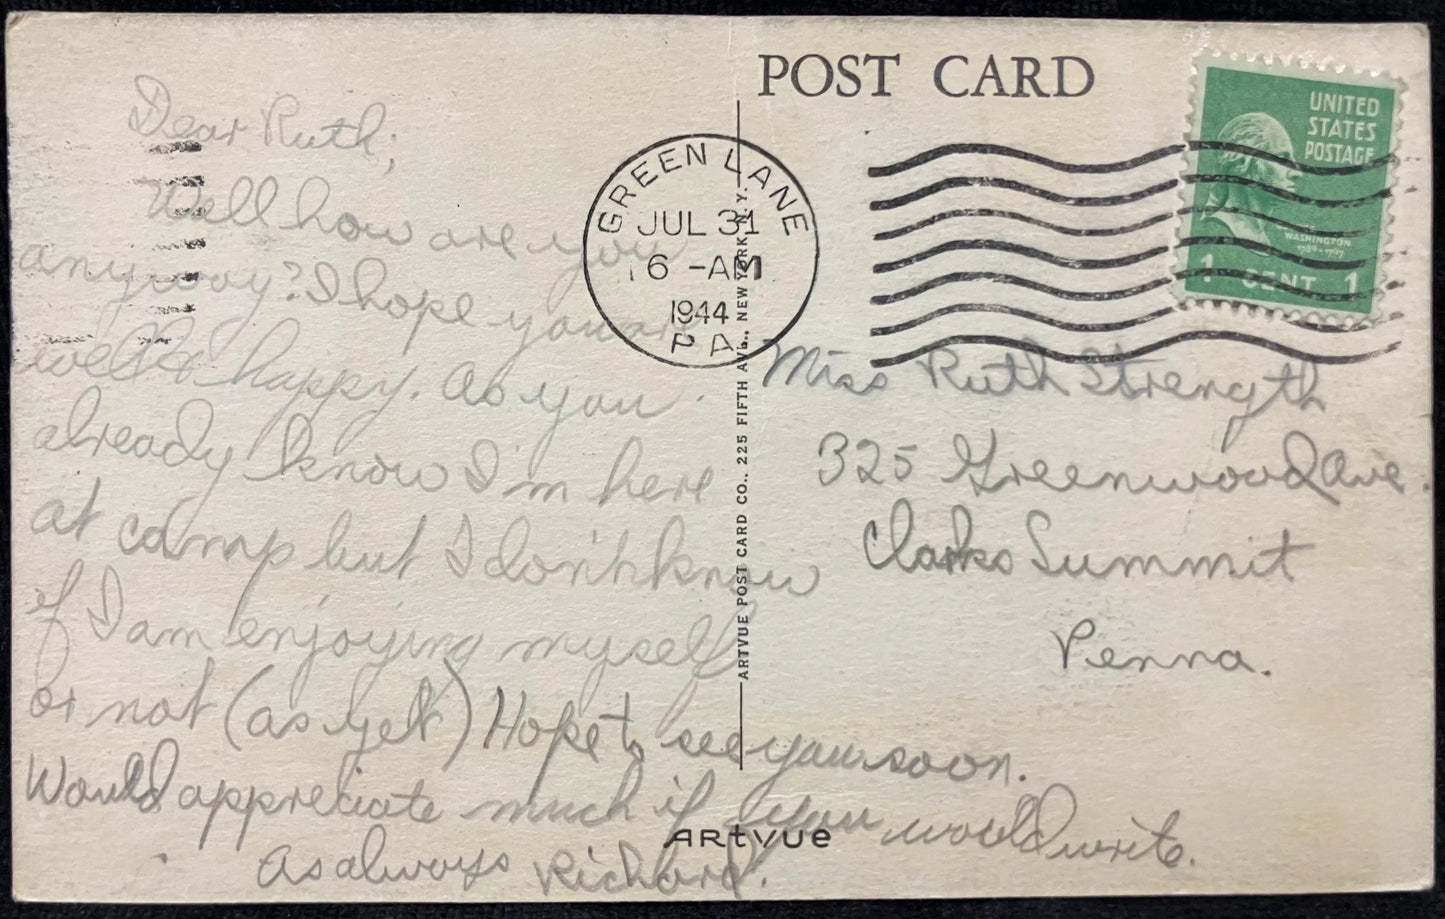 POST CARD
UNITED
STATES
POSTAGE
WASHINGTON
1789-1797
1 CENT 1
GREEN LANE
JUL 31
6 -AM
1944
PA
ARTVUE POST CARD CO., 225 FIFTH AVE., NEW YORK, N.Y.
Dear Ruth;
Well how are you
anyway? I hope you are
well & happy. As you
already know I'm here
at camp but I don't know
if I am enjoying myself
or not (as yet) Hope to see you soon.
Would appreciate much if you would write.
As always Richard.
Miss Ruth Strength
325 Greenwood Ave.
Clarks Summit
Penna.
ARtVUe